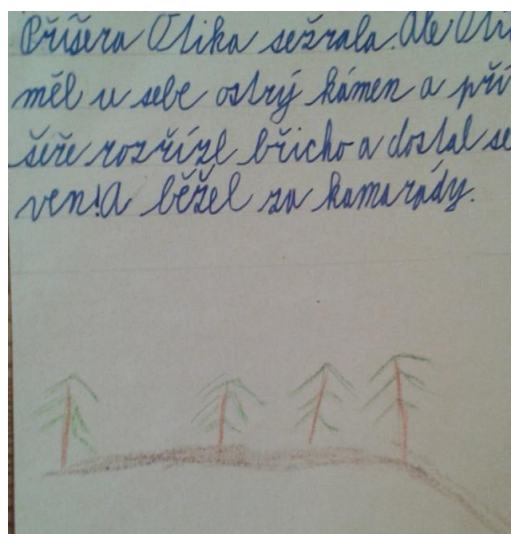 Příšera Otika sežrala. Ale Oti
měl u sebe ostrý kámen a pří
šeře rozřízl břicho a dostal se
ven!A běžel za kamarády.